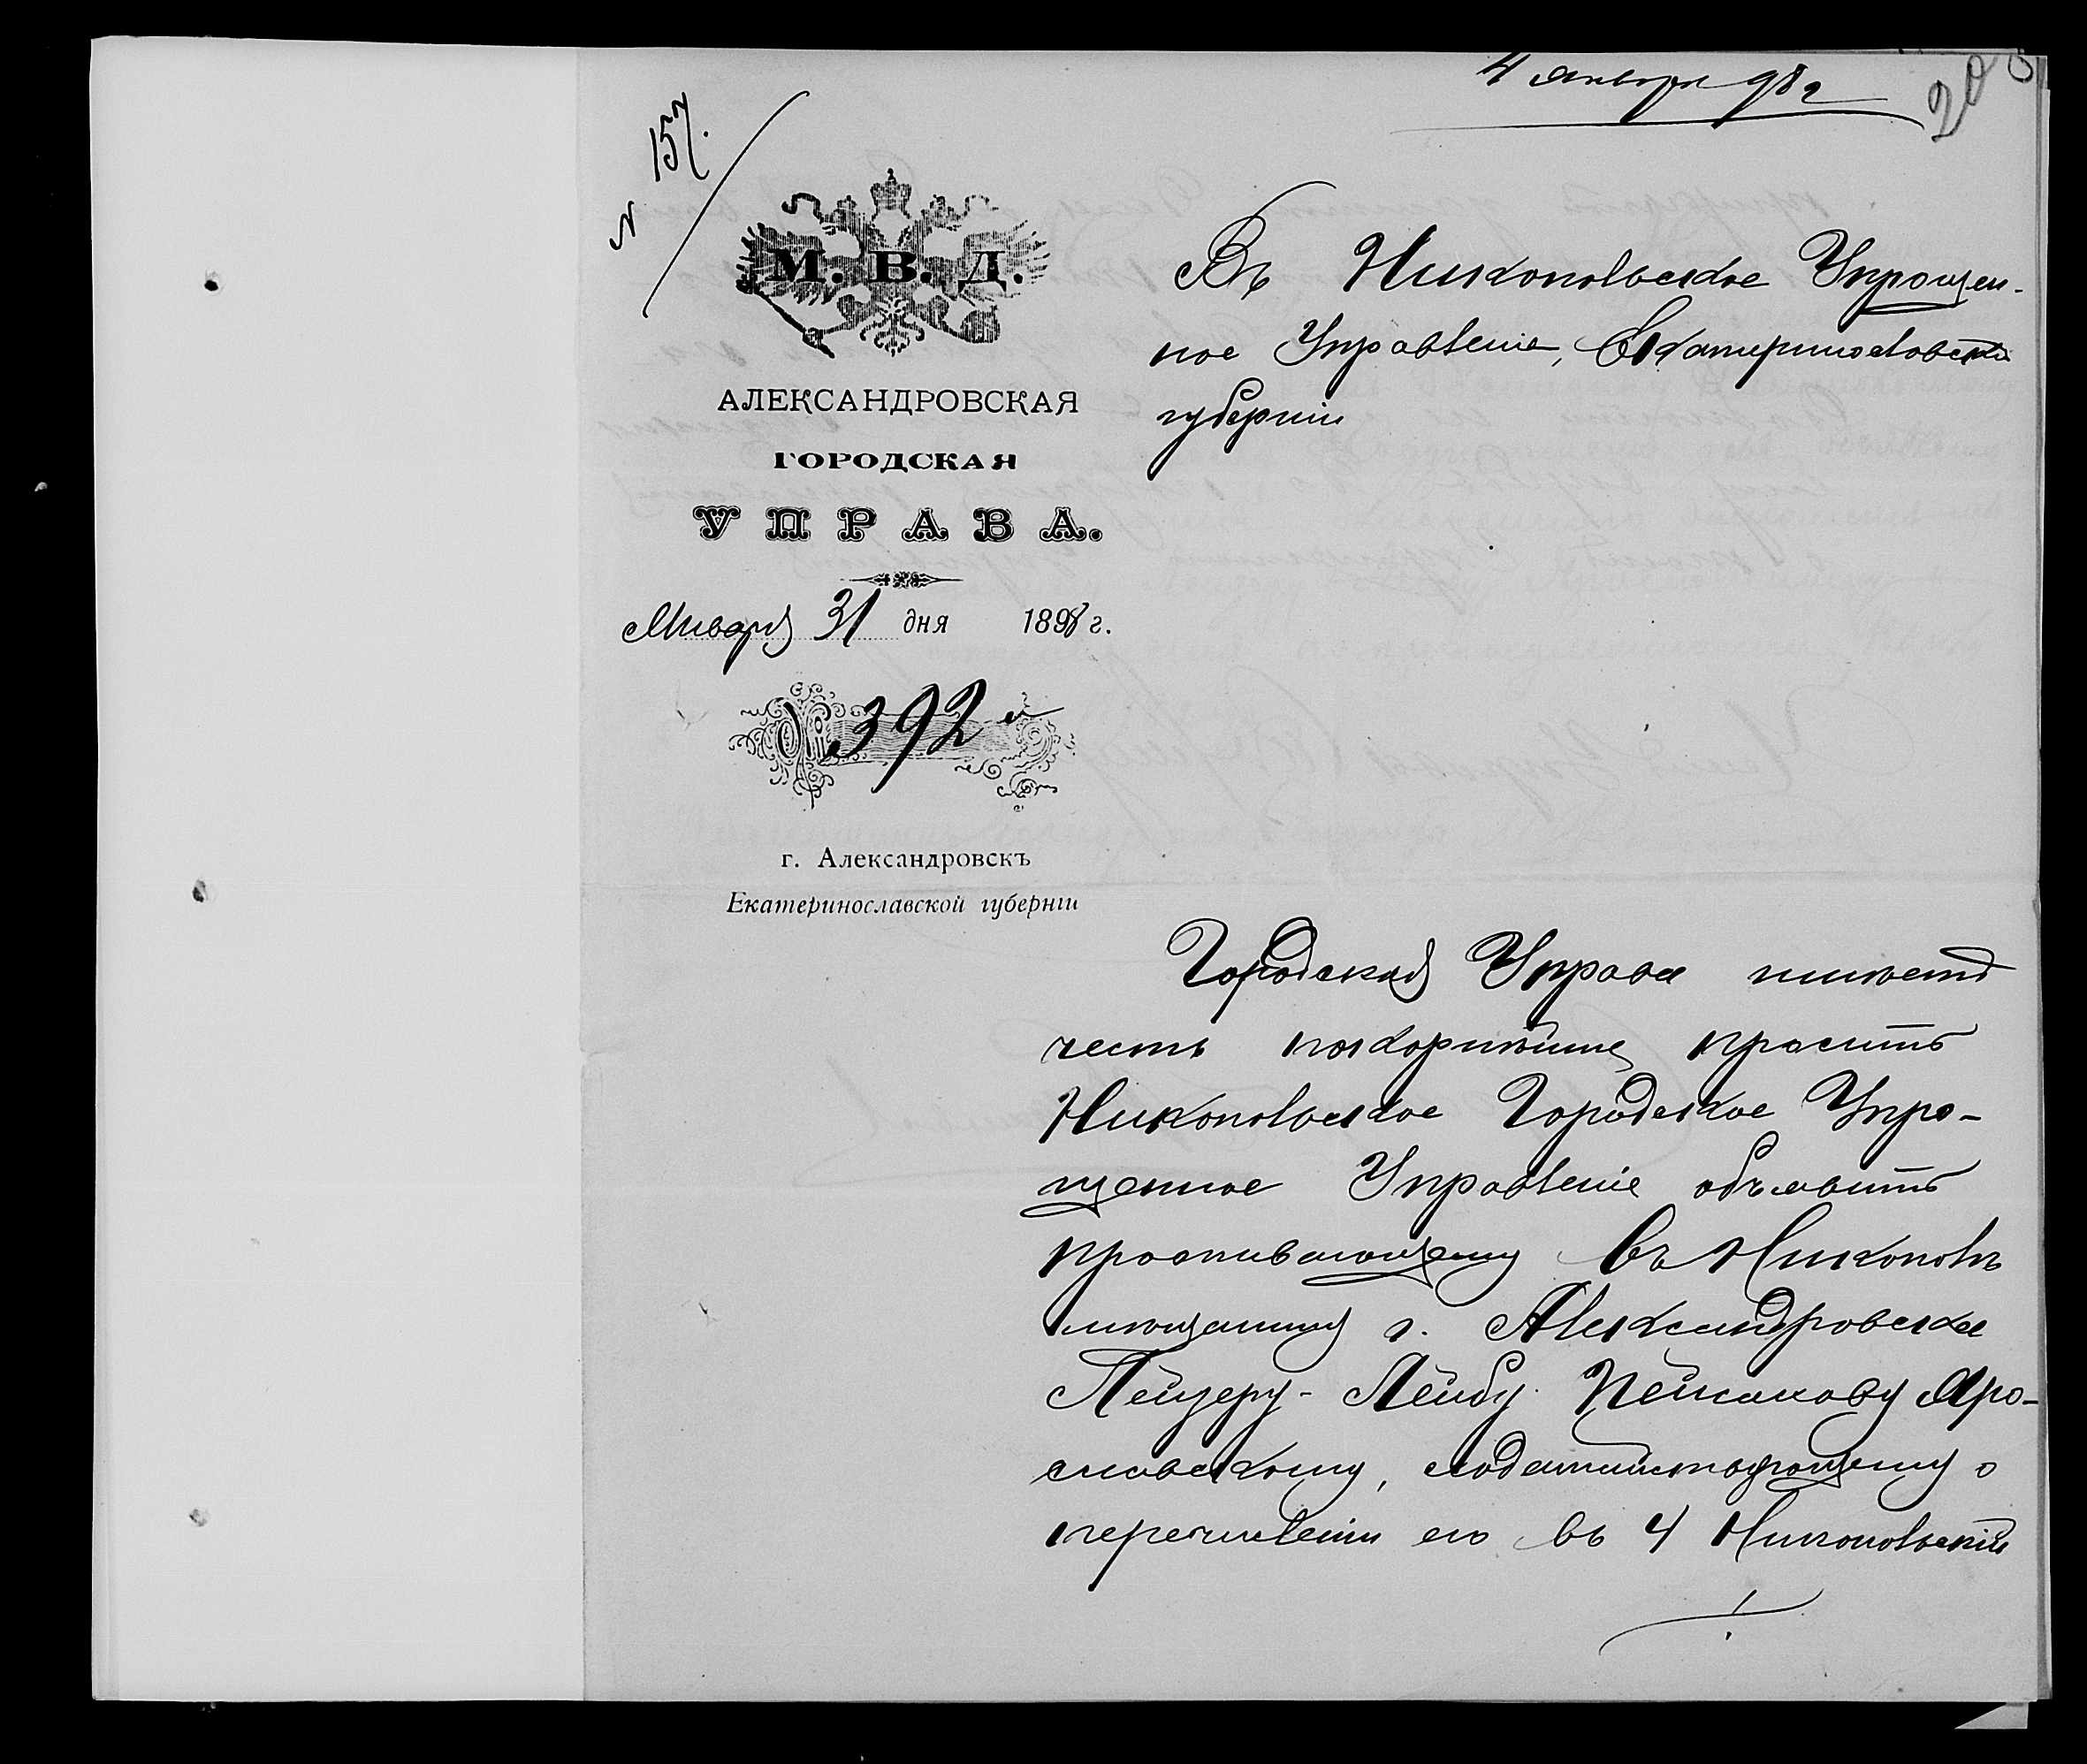 4 января 98 г
208
N 157.
М. В. Д.
АЛЕКСАНДРОВСКАЯ
ГОРОДСКАЯ
УПРАВА.
Января 31 дня 1898 г.
№ 392
г. Александровскъ
Екатеринославской губернiи
Въ Никопольское Упрощен-
ное Управленіе, Екатеринославской
губерніи
Городская Управа имѣетъ
честь покорнѣйше просить
Никопольское Городское Упро-
щенное Управленіе объявить
проживающему въ Никополѣ
мѣщанину г. Александровска
Лейзеру-Лейбу Пейсахову Яро-
славскому, ходатайствующему о
перечисленіи его въ 4 Никопольскій